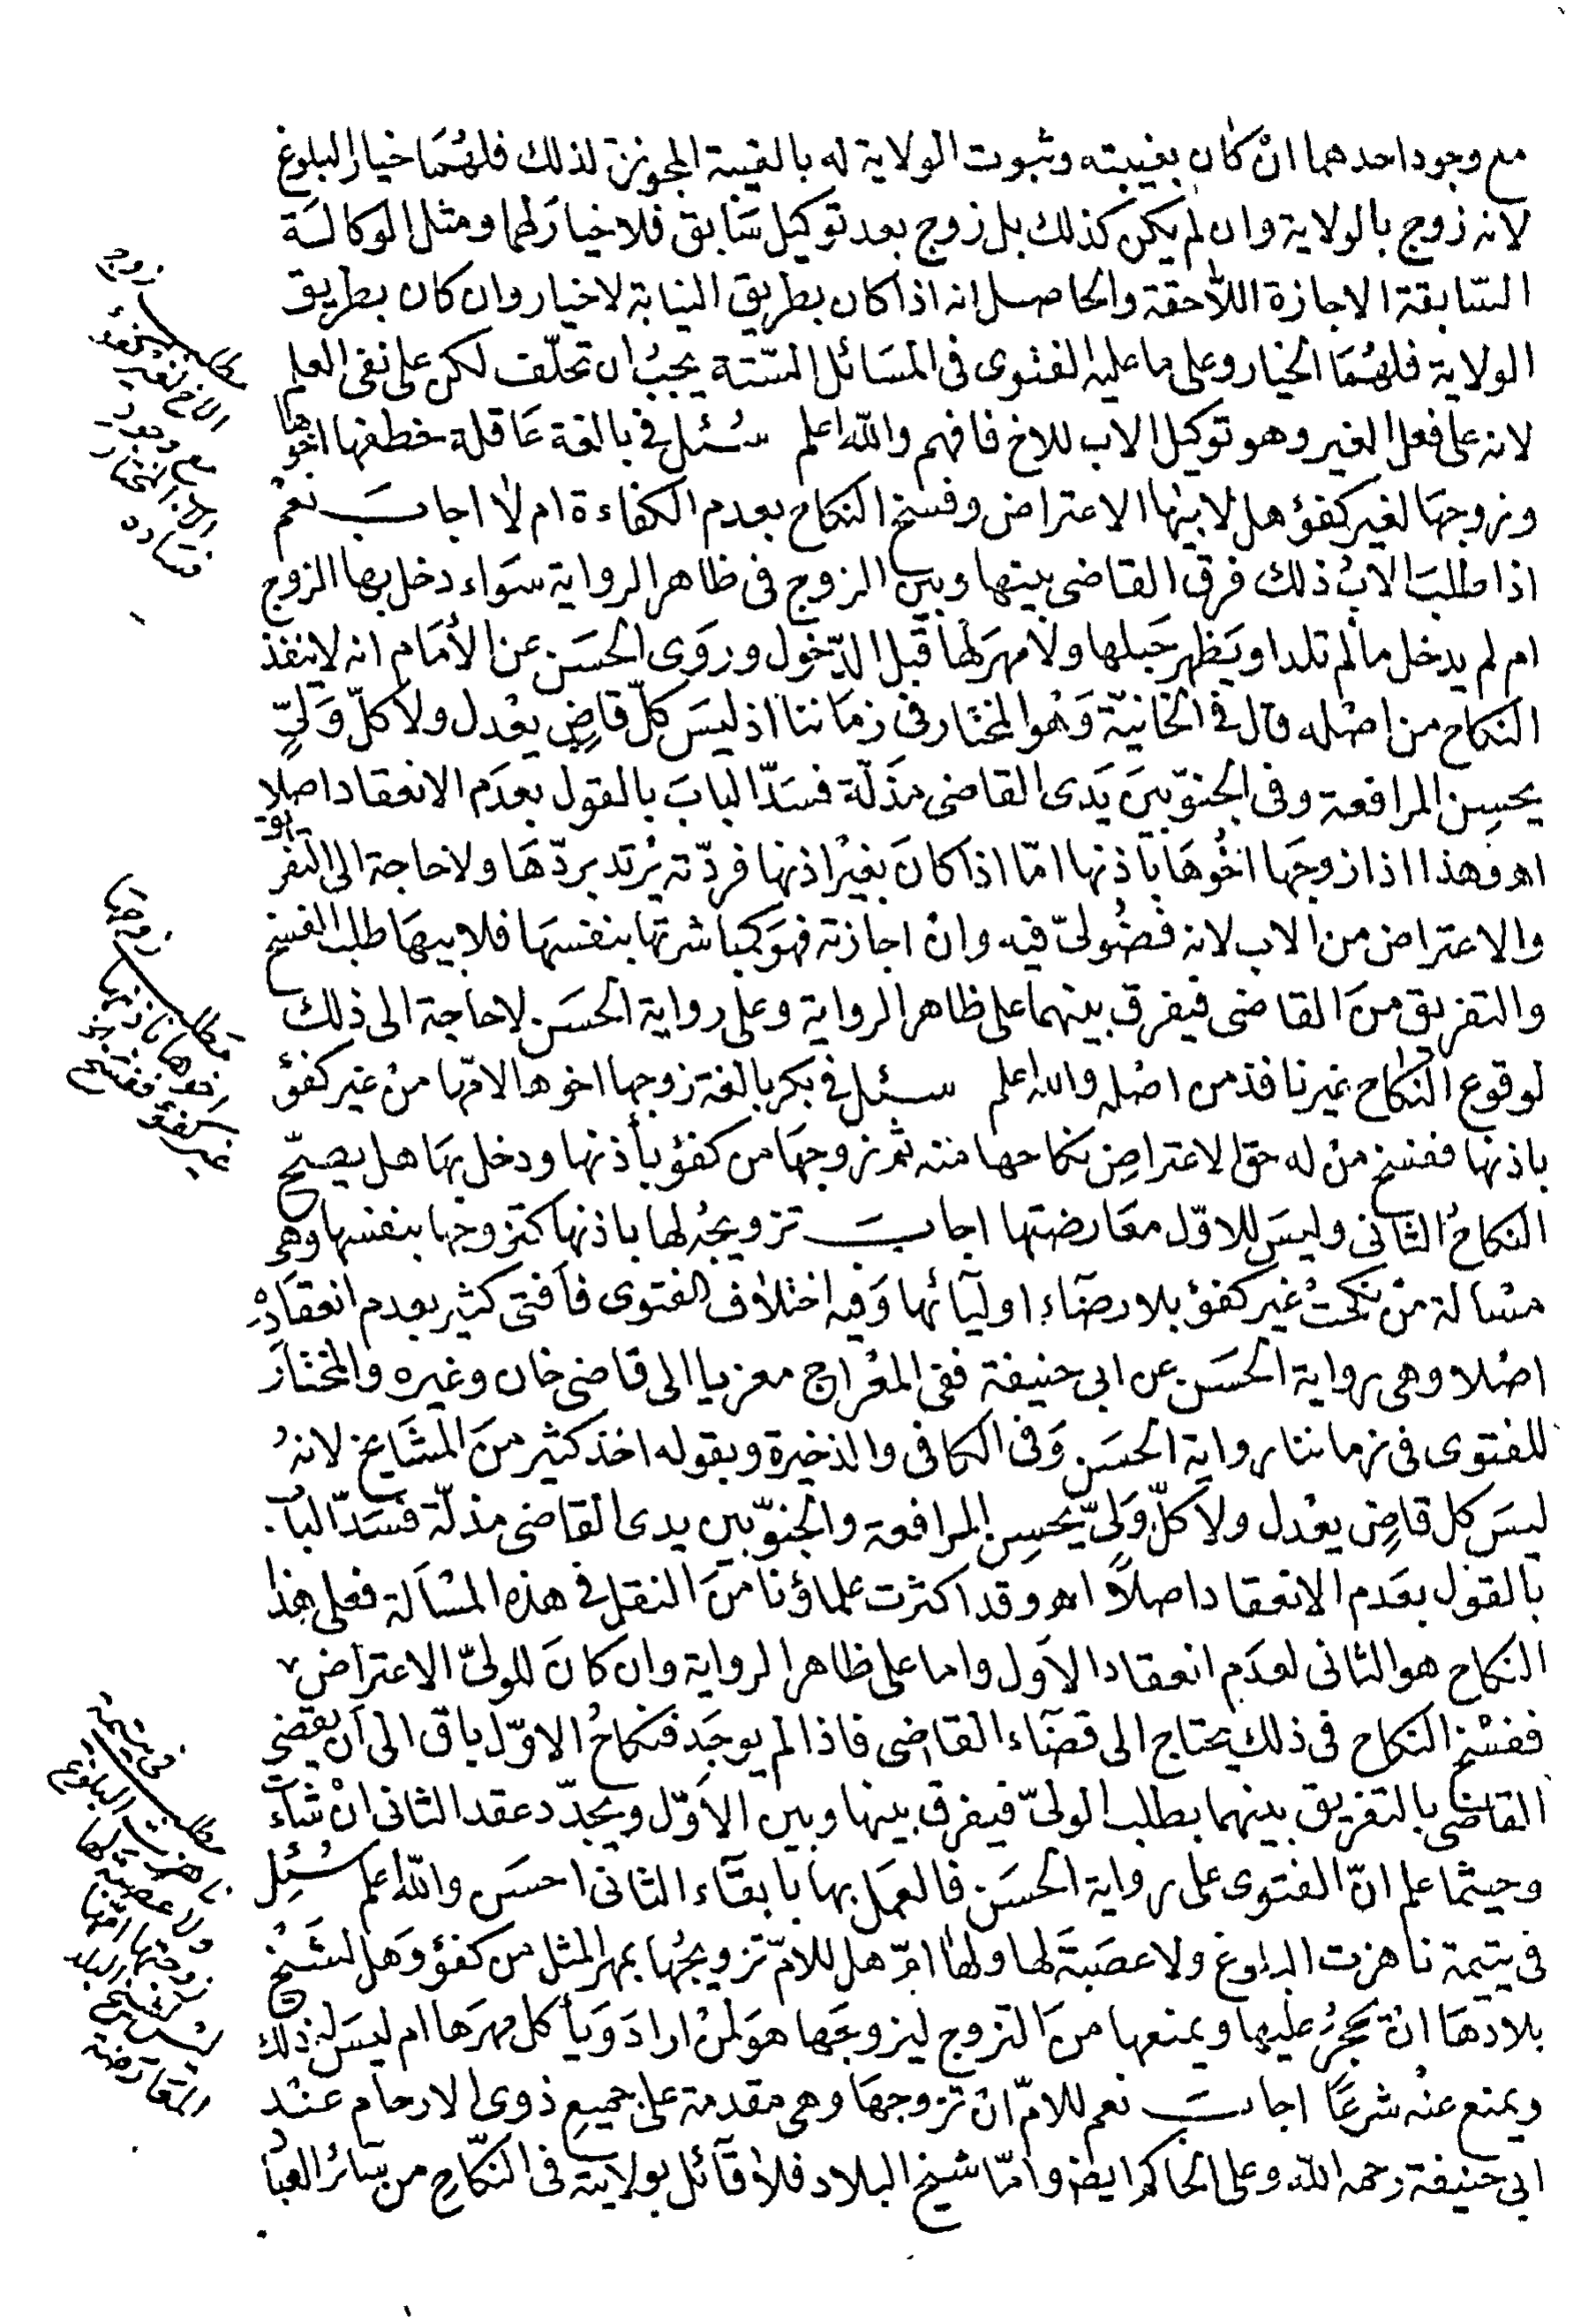 مع وجود احدهما انْ كان بغيبته وثبوت الولاية له بالغيبة المجوزة لذلك فلهُمَا خيار البلوغ
لانه زوج بالولاية وان لم يكن كذلك بل زوج بعد توكيل سَابق فلا خيار لهما ومثل الوكالة
السّابقة الاجازة اللاحقة والحاصل انه اذا كان بطريق النيابة لاخيار وان كان بطريق
الولاية فلهُمَا الخيار وعلى ما عليه الفتوى فى المسَائل الستة يجبُ ان تحلّف لكن على نفى العلم
لانه على فعل الغير وهو توكيل الاب للاخ فافهم والله اعلم سُئل في بالغة عَاقلة خطفها اخوها
وزوجهَا لغير كفؤ هل لابيها الاعتراض وفسخ النكاح بعدم الكفاءة ام لا اجابَ نعمْ
اذا طلبَ الابُ ذلك فرق القاضى بينها وبين الزوج فى ظاهر الرواية سَواء دخل بها الزوج
ام لم يدخل مالم تلد او يَظهر حَبلها ولا مهرَ لهَا قبل الدّخول وروَى الحسَن عن الأمَام انه لاينفذ
النكاح من اصْله قال في الخانيّة وَهُو المختار فى زمَاننا اذ ليسَ كلّ قاضٍ يعْدل ولا كلّ وَلىٍّ
يحسِن المرافعة وفى الجثوّ بينَ يَدى القاضى مَذَلّة فسَدّ البابَ بالقول بعدَم الانعقاد اصلا
اھ وهذا اذا زوجَها اخُوهَا بأذنها امّا اذا كانَ بغيْر اذنها فردّته يرْتد بردّهَا ولا حاجة الى التفريق
والاعتراض من الاب لانه فضُولىّ فيه وانْ اجازته فهوَ كمباشرتها بنفسهَا فلابيهَا طلب الفسخ
والتفريق منَ القاضى فيفرق بينهما على ظاهر الرواية وعلى رواية الحسَن لاحاجة الى ذلك
لوقوع النكاح غير نافذ من اصْله والله اعلم سئل في بكر بالغة زوجها اخوها لامّها منْ غير كفؤ
باذنها ففسخ منْ له حق الاعتراض نكاحها منه ثم زوجهَا من كفؤ بأذنها ودخل بهَا هل يصحّ
النكاحُ الثانى وليسَ للاوّل معَارضتها اجابَ تزويجُه لها باذنها كتزوجها بنفسها وهى
مسْالة منْ نكحتْ غير كفؤ بلا رضآء اوليآئها وَفيه اختلاف الفتوى فأفتى كثير بعدم انعقادِهْ
اصْلا وهى رواية الحسَن عن ابى حنيفة ففى المعْراج معزيا الى قاضى خان وغيره والمختارَ
للفتوى فى زماننا رواية الحسَن وَفى الكافى والذخيرة وبقوله اخذ كثير منَ المشَايخ لانهُ
ليسَ كل قاضٍ يعْدل ولا كلّ وَلىّ يحسِن المرافعة والجثوّ بين يدى القاضى مذلّة فسَدّ الباب
بالقول بعَدم الانعقاد اصلاً اھ وقد اكثرت علماؤنا منَ النقل في هذه المسْألة فعلى هذا
النكاح هو الثانى لعدَم انعقاد الاَول واما على ظاهر الرواية وان كانَ للولىّ الاعتراض
ففسْخ النكاح فى ذلك يحتاج الى قضَآء القاضى فاذا لم يوجَد فنكاحُ الاوّل باق الى أن يقضى
القاضى بالتفريق بينهما بطلب الولىّ فيفرق بينها وبين الأوّل ويجدّد عقد الثانى انْ شاءت
وحيثما علم انّ الفتوى على رواية الحسَن فالعمَل بها بابقآء الثانى احسَن والله اعلم سُئِل
فى يتيمة ناهزت البلوغ ولا عصَبةَ لها ولها امّ هل للامّ تزويجُها بمهر المثل من كفؤ وَهل لشَيْخ
بلادهَا انْ يحجرُ عليها ويمنعها منَ التزوج ليزوجَها هوَ لمنْ ارادَ وَيأكل مهرَها ام ليسَ له ذلك
ويمنع عنه شرعًا اجابَ نعم للامّ انْ تزوجهَا وهى مقدمة على جميعِ ذوى الارحام عنْد
ابى حنيفة رحمه اللّه وعلى الحاكم ايضا وامّا شيخ البلاد فلا قآئل بولايته فى النكاحِ من سَائرُ العُبا
زوج
الاخ لغير كفؤ
مع وجود
الاب
زوجها
اخوها باذنها
غير كفؤ ففسخ
فى يتيمة
ناهزت البلوغ
ولا عصبة لها
زوجتها امها
ليس لشيخ البلاد
المعارضة